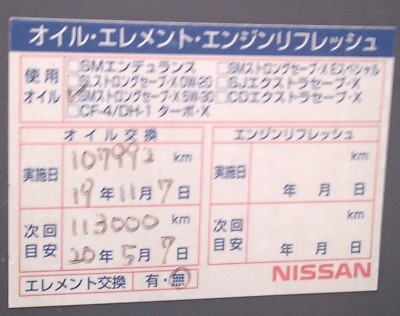 オイル・エレメント・エンジンリフレッシュ
使用オイル
□SMエンデュランス □SMストロングセーブ・X Eスペシャル
□SLストロングセーブ・X 0W-20 □SJエクストラセーブ・X
☑SMストロングセーブ・X 5W-30 □CDエクストラセーブ・X
□CF-4/DH-1 ターボ・X
オイル交換 エンジンリフレッシュ
実施日 107992 km 実施日 km
19年 11月 7日 年 月 日
次回目安 113000 km 次回目安 km
20年 5月 7日 年 月 日
エレメント交換 有・無 NISSAN